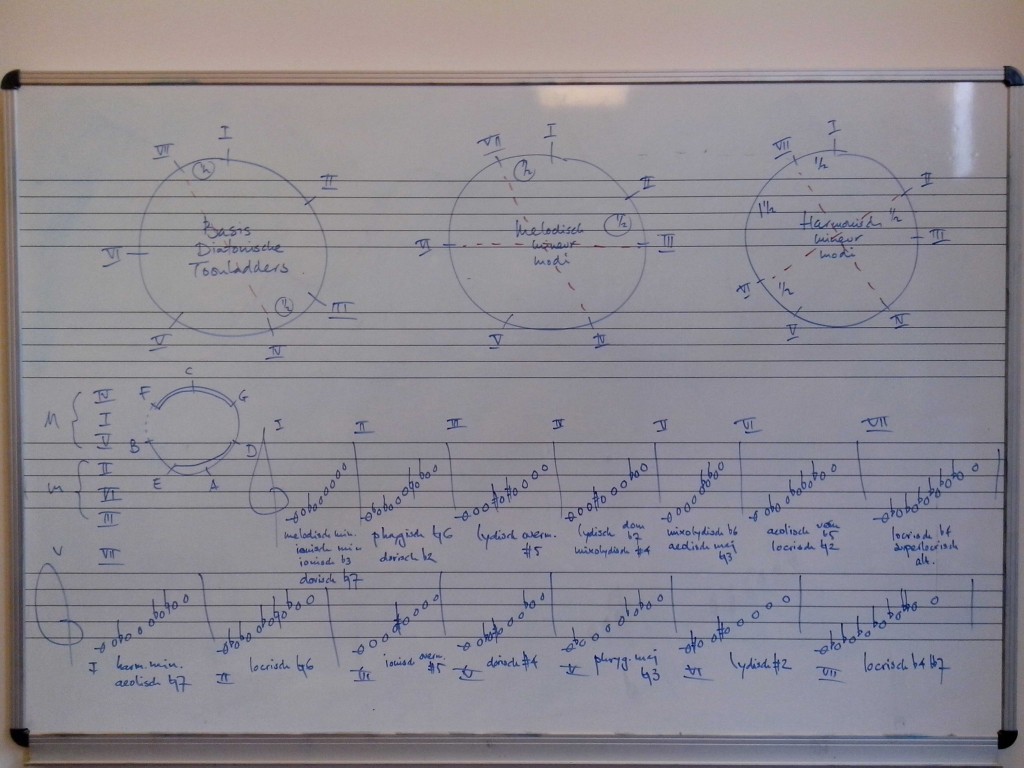 VII I II III IV V VI
½ ½
Basis
Diatonische
Toonladders
VII I II III IV V VI
½ 1½
Melodisch
mineur
modi
VII I II III IV V VI
½ 1½ ½ ½
Harmonisch
mineur
modi
M { IV
I
V
m { II
VI
III
v VII
C G D A E B F
I II III IV V VI VII
melodisch min.
ionisch min
ionisch b3
dorisch ♮7
phrygisch ♮6
dorisch b2
lydisch overm.
#5
lydisch dom
b7
mixolydisch #4
mixolydisch b6
aeolisch maj
♮3
aeolisch
b5
locrisch ♮2
locrisch b4
superlocrisch
alt.
I harm. min.
aeolisch ♮7
II locrisch ♮6
III ionisch overm.
#5
dorisch #4
V phryg. maj
♮3
VI lydisch #2
VII locrisch b4 bb7